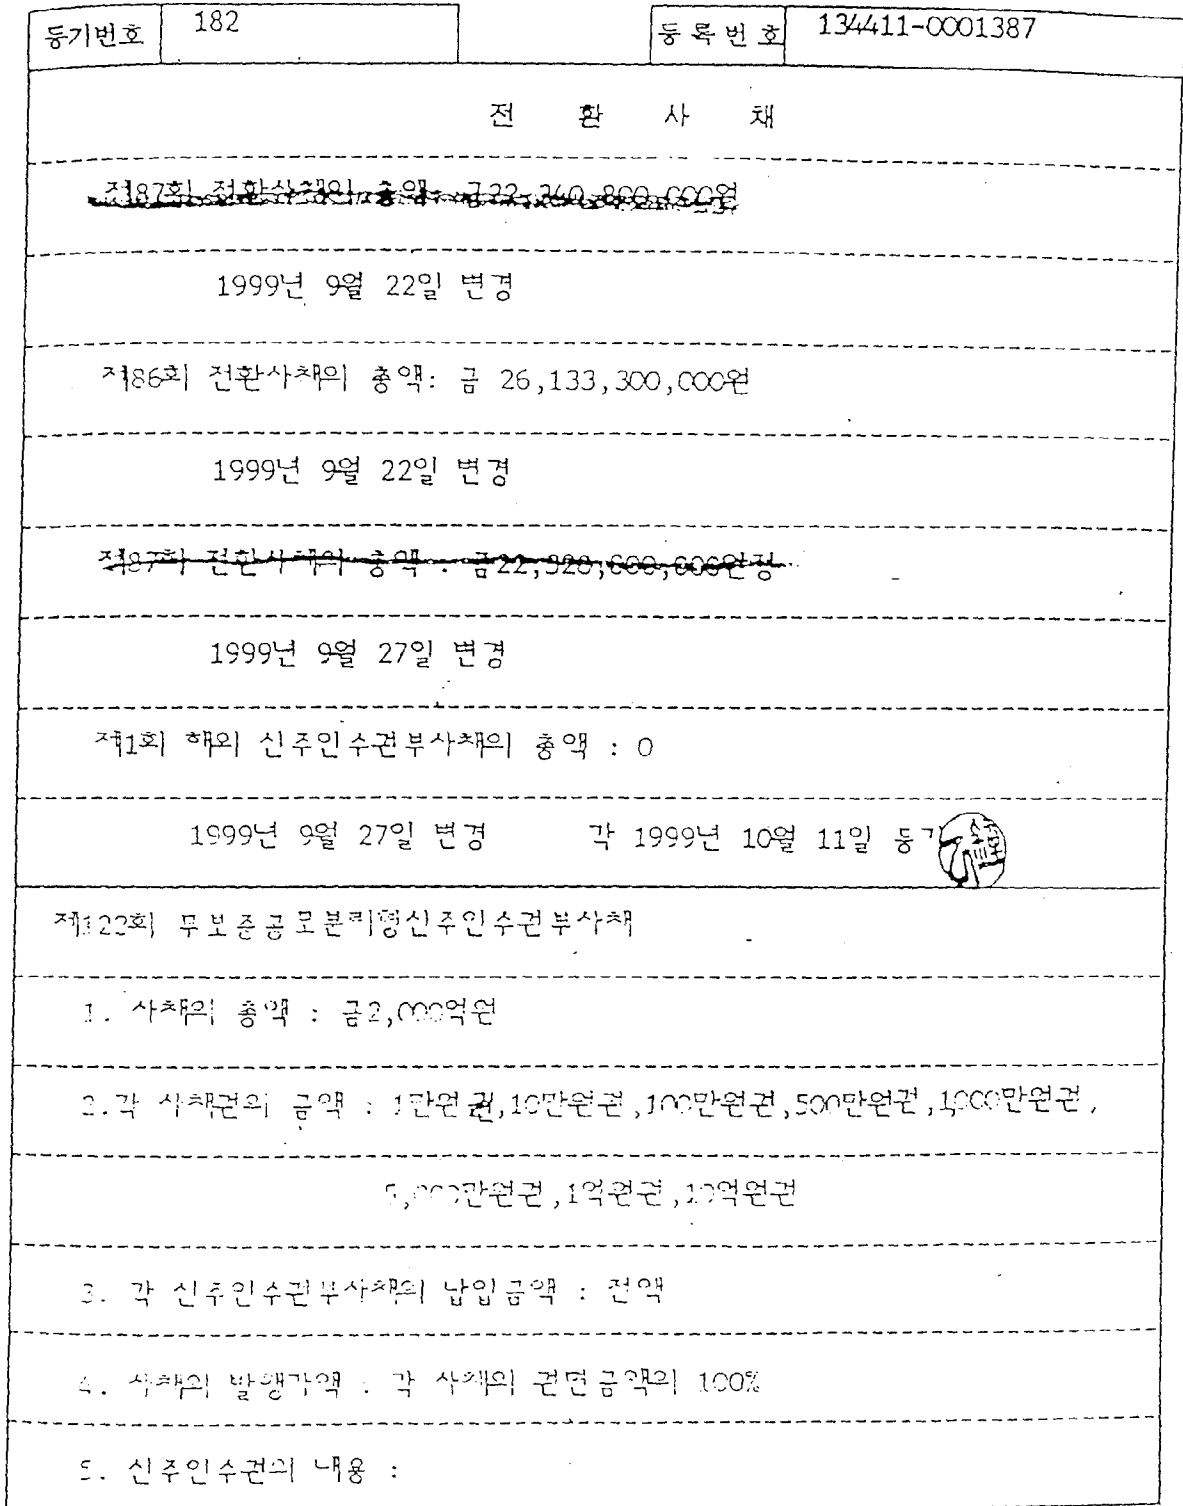 등기번호 182 등록번호 134411-0001387
전 환 사 채
제87회 전환사채의 총액: 금22,340,800,000원
1999년 9월 22일 변경
제86회 전환사채의 총액: 금 26,133,300,000원
1999년 9월 22일 변경
제87회 전환사채의 총액 : 금22,328,600,000원정
1999년 9월 27일 변경
제1회 해외 신주인수권부사채의 총액 : 0
1999년 9월 27일 변경 각 1999년 10월 11일 등기
제122회 무보증공모분리형신주인수권부사채
1. 사채의 총액 : 금2,000억원
2.각 사채권의 금액 : 1만원권,10만원권,100만원권,500만원권,1000만원권,
5,000만원권,1억원권,10억원권
3. 각 신주인수권부사채의 납입금액 : 전액
4. 사채의 발행가액 : 각 사채의 권면금액의 100%
5. 신주인수권의 내용 :